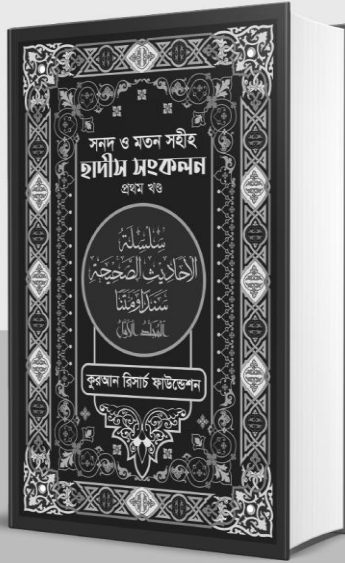 সনদ ও মতন সহীহ
হাদীস সংকলন
প্রথম খণ্ড
سلسلة
الأحاديث الصحيحة
سندا ومتنا
المجلد الأول
কুরআন রিসার্চ ফাউন্ডেশন